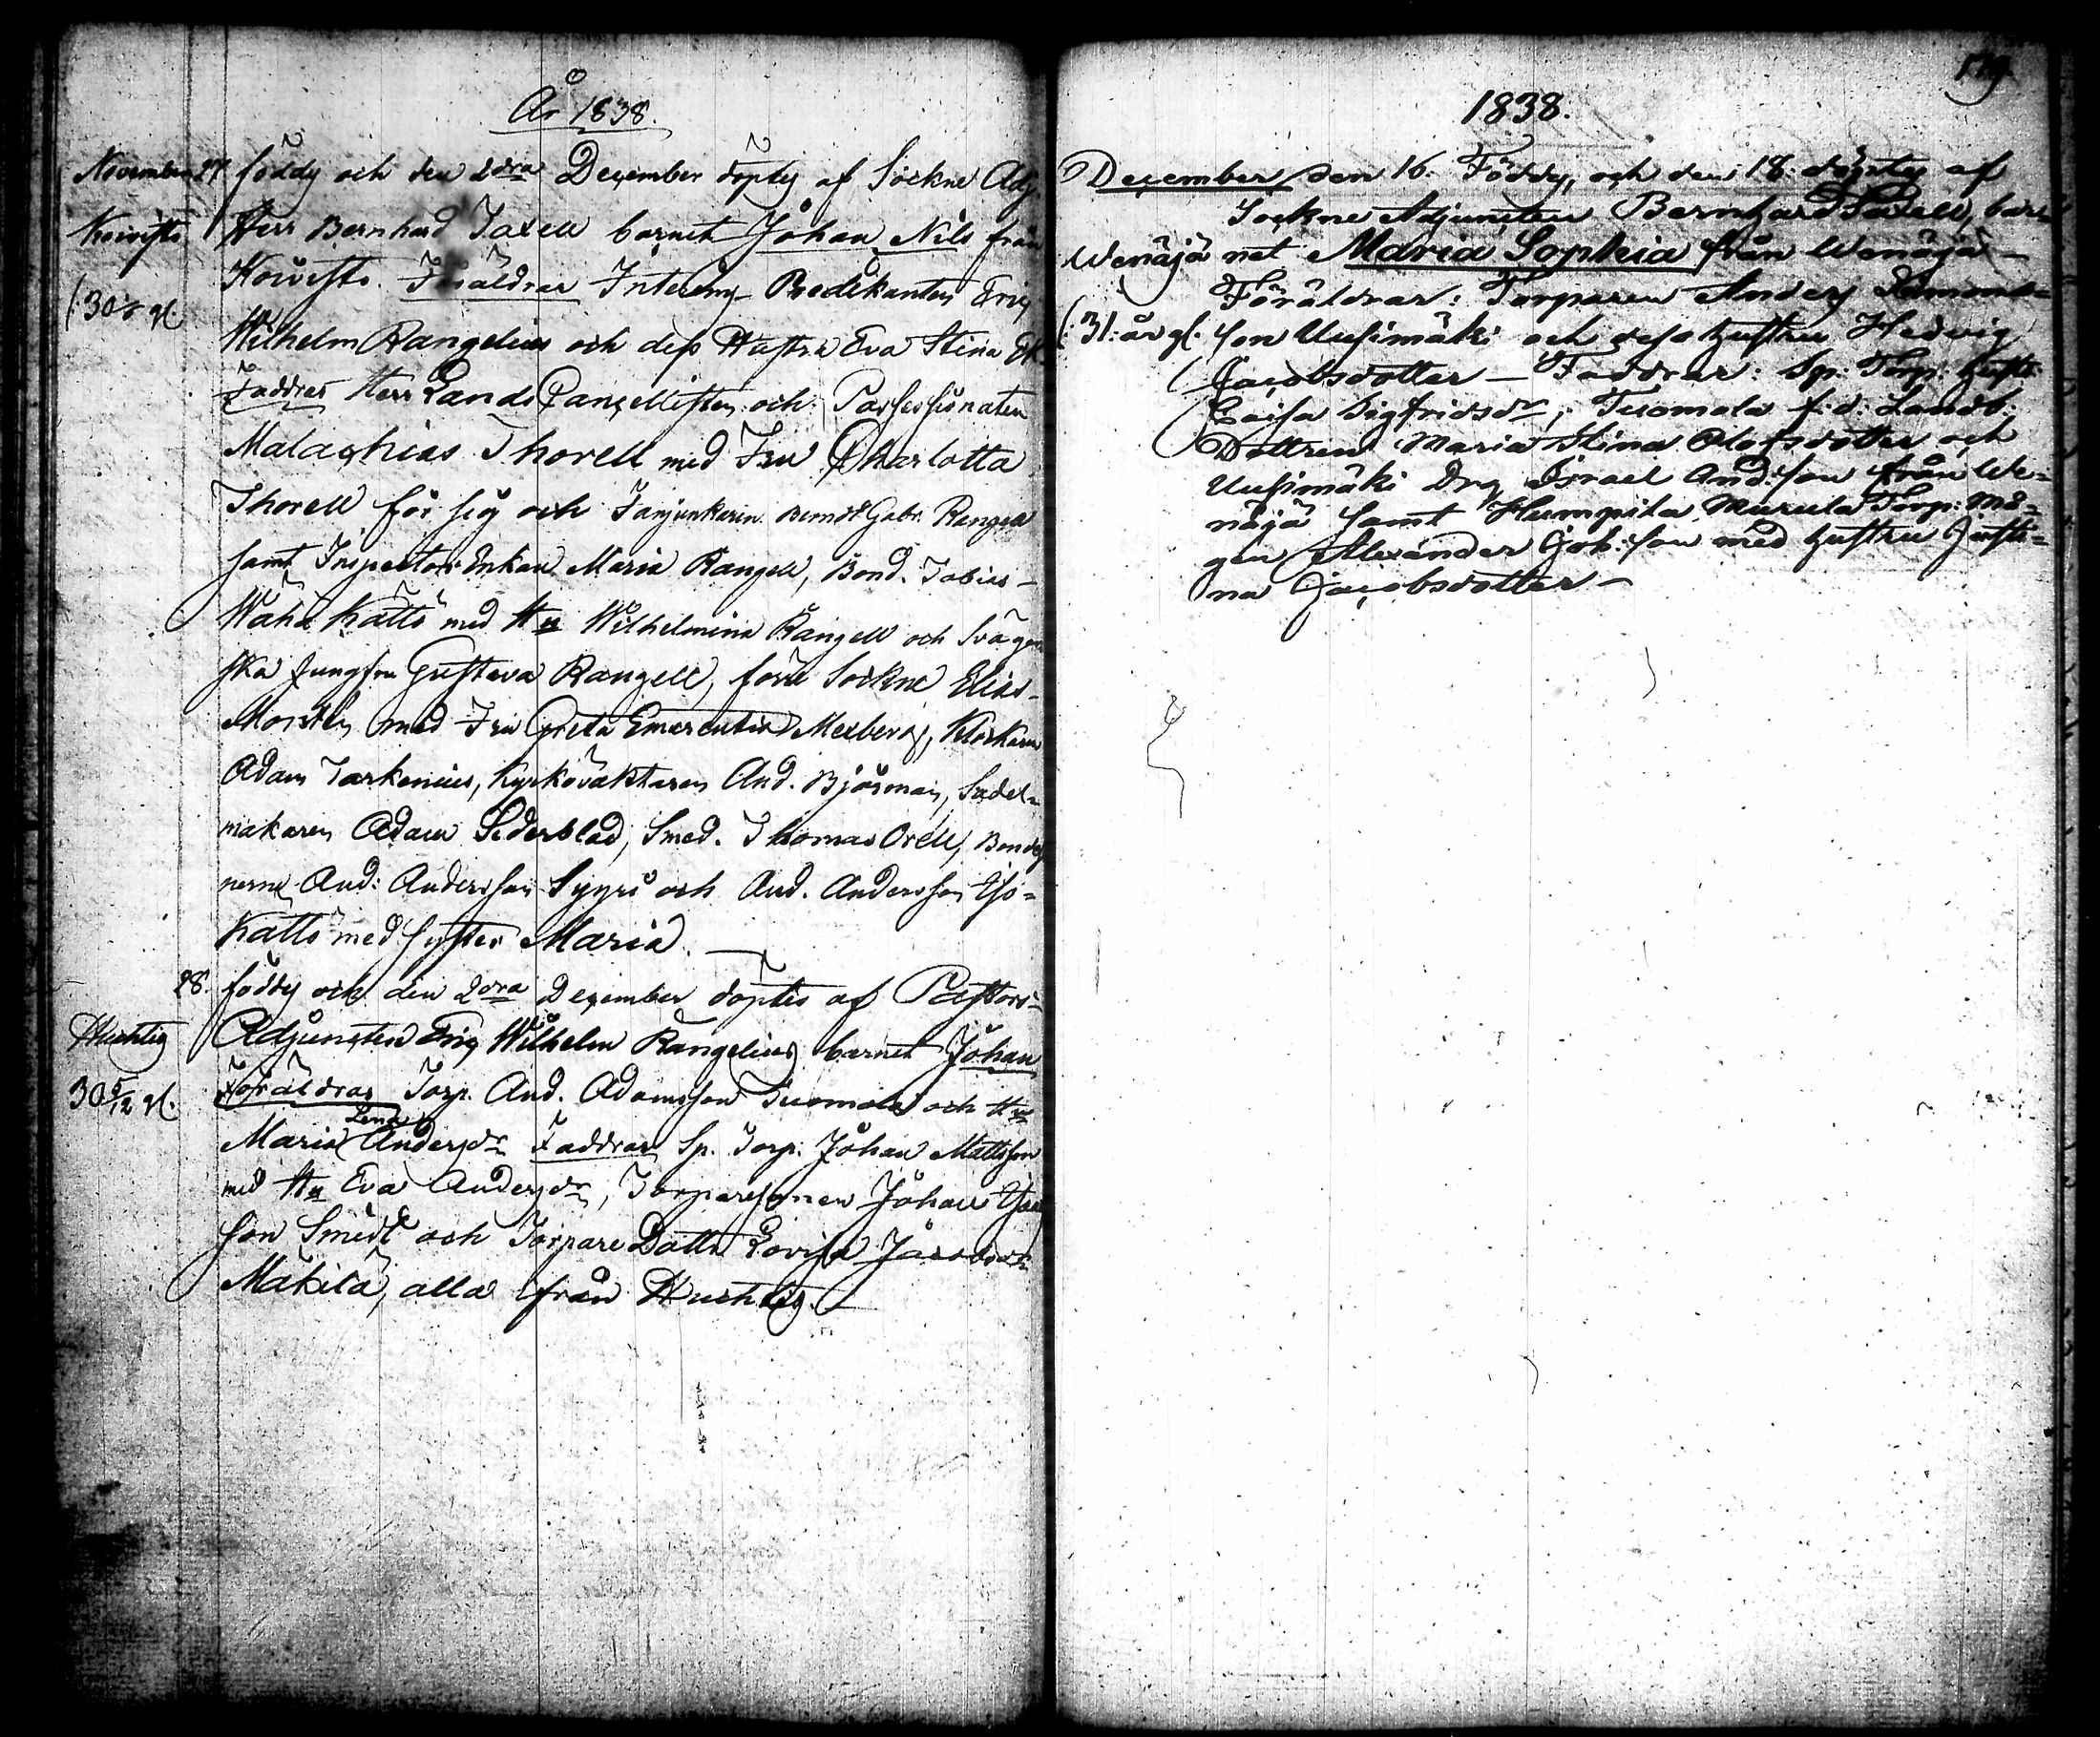 År 1838.
November 27 föddes och den 2dra December döptes af Sockne Adj.
Koivisto Herr Bernhard Taxell barnet Johan Nils från
Koivisto. Föräldrar Interims Predikanten Eric
(:30 gl. Wilhelm Rangelius och dess Hustru Eva Stina
Faddrar Herr Lands Cancellisten och Possessionaten
Malachias Thorell med Fru Charlotta
Thorell för sig och Fanjunkaren Berndt Gabr. Rangell
samt Inspectors Enkan Maria Rangell, Bond. Tobias
Wähä Kattö med Hu Wilhelmina Rangell och Svägers
ska Jungfru Gustava Rangell, förre Sockne Elias
med Fru Greta Emerentia Mexberg, Klockaren
Adam Tarkenius, Kyrkovaktaren And. Björman, Sadel-
makaren Adam Sederblad, Smed. Thomas Orell, Bönder
nerne And: Andersson Syyri och And. Andersson Iso-
Kattö med syster Maria.
28. föddes och den 2dra December döptes af Pastors
Huchtis Adjuncten Eric Wilhelm Rangelius barnet Johan
30 5/12 gl. Föräldrar Torp. And. Adamsson Tuomola och Hu
Lena
Maria Andersdr Faddrar Sp. Torp. Johan Mattsson
med Hu Eva Andersdr, Torparesonen Johan
son Smidt och Torpare Dottr Lovisa Jacobsdr
Mäkilä, alla från Huchtis.
519.
1838.
December den 16. Föddes, och den 18. döptes af
Sockne Adjuncten Bernhard Taxell, bar-
Wenäjä net Maria Sophia från Wenäjä
Föräldrar: Torparen Anders Simons-
(:31: år gl. son Uusimäki och dess hustru Hedvig
Jacobsdotter — Faddrar: Sp: Torp: hustr:
Caisa Sigfridsdr, Tuomola f.d. Landb.
Dottren Maria Stina Olofsdotter och
Uusimäki Drg Israel And:son från We-
näjä samt Humpila Murula Torp: Må-
gen Alexander Joh:son med hustru Justi-
na Jacobsdotter —